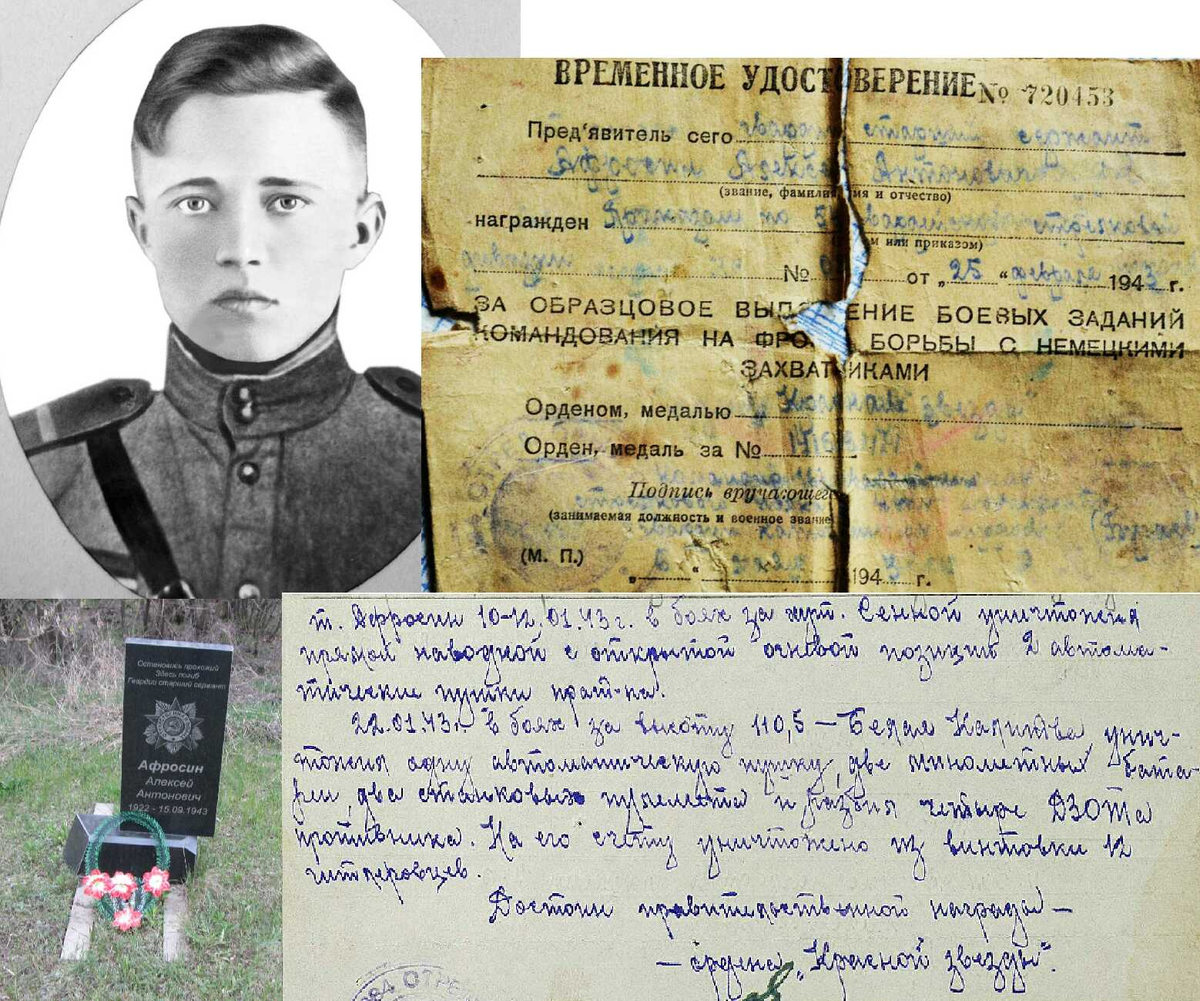 ВРЕМЕННОЕ УДОСТОВЕРЕНИЕ № 720453
Пред'явитель сего гвардии старший сержант
Афросин Алексей Антонович
(звание, фамилия, имя и отчество)
награжден Приказом по гвардейской стрелковой
м или приказом)
дивизии № от „25“ февраля 1943 г.
ЗА ОБРАЗЦОВОЕ ВЫПОЛНЕНИЕ БОЕВЫХ ЗАДАНИЙ
КОМАНДОВАНИЯ НА ФРОНТЕ БОРЬБЫ С НЕМЕЦКИМИ
ЗАХВАТЧИКАМИ
Орденом, медалью „Красная звезда"
Орден, медаль за №
Подпись вручающего
(занимаемая должность и военное звание
(М. П.)
„ “ 194 г.
Остановись прохожий
Здесь погиб
Гвардии старший сержант
Афросин
Алексей
Антонович
1922 - 15.09.1943
т. Афросин 10-12.01.43 г. в боях за хут. Сенной уничтожил
прямой наводкой с открытой огневой позиции 2 автома-
тические пушки прот-ка.
22.01.43г. в боях за высоту 110,5 — Белая Калитва унич-
тожил одну автоматическую пушку, две минометных бата-
реи, два станковых пулемета и разбил четыре ДЗОТа
противника. На его счету уничтожено из винтовки 12
гитлеровцев.
Достоин правительственной награды —
— ордена „Красной звезды".